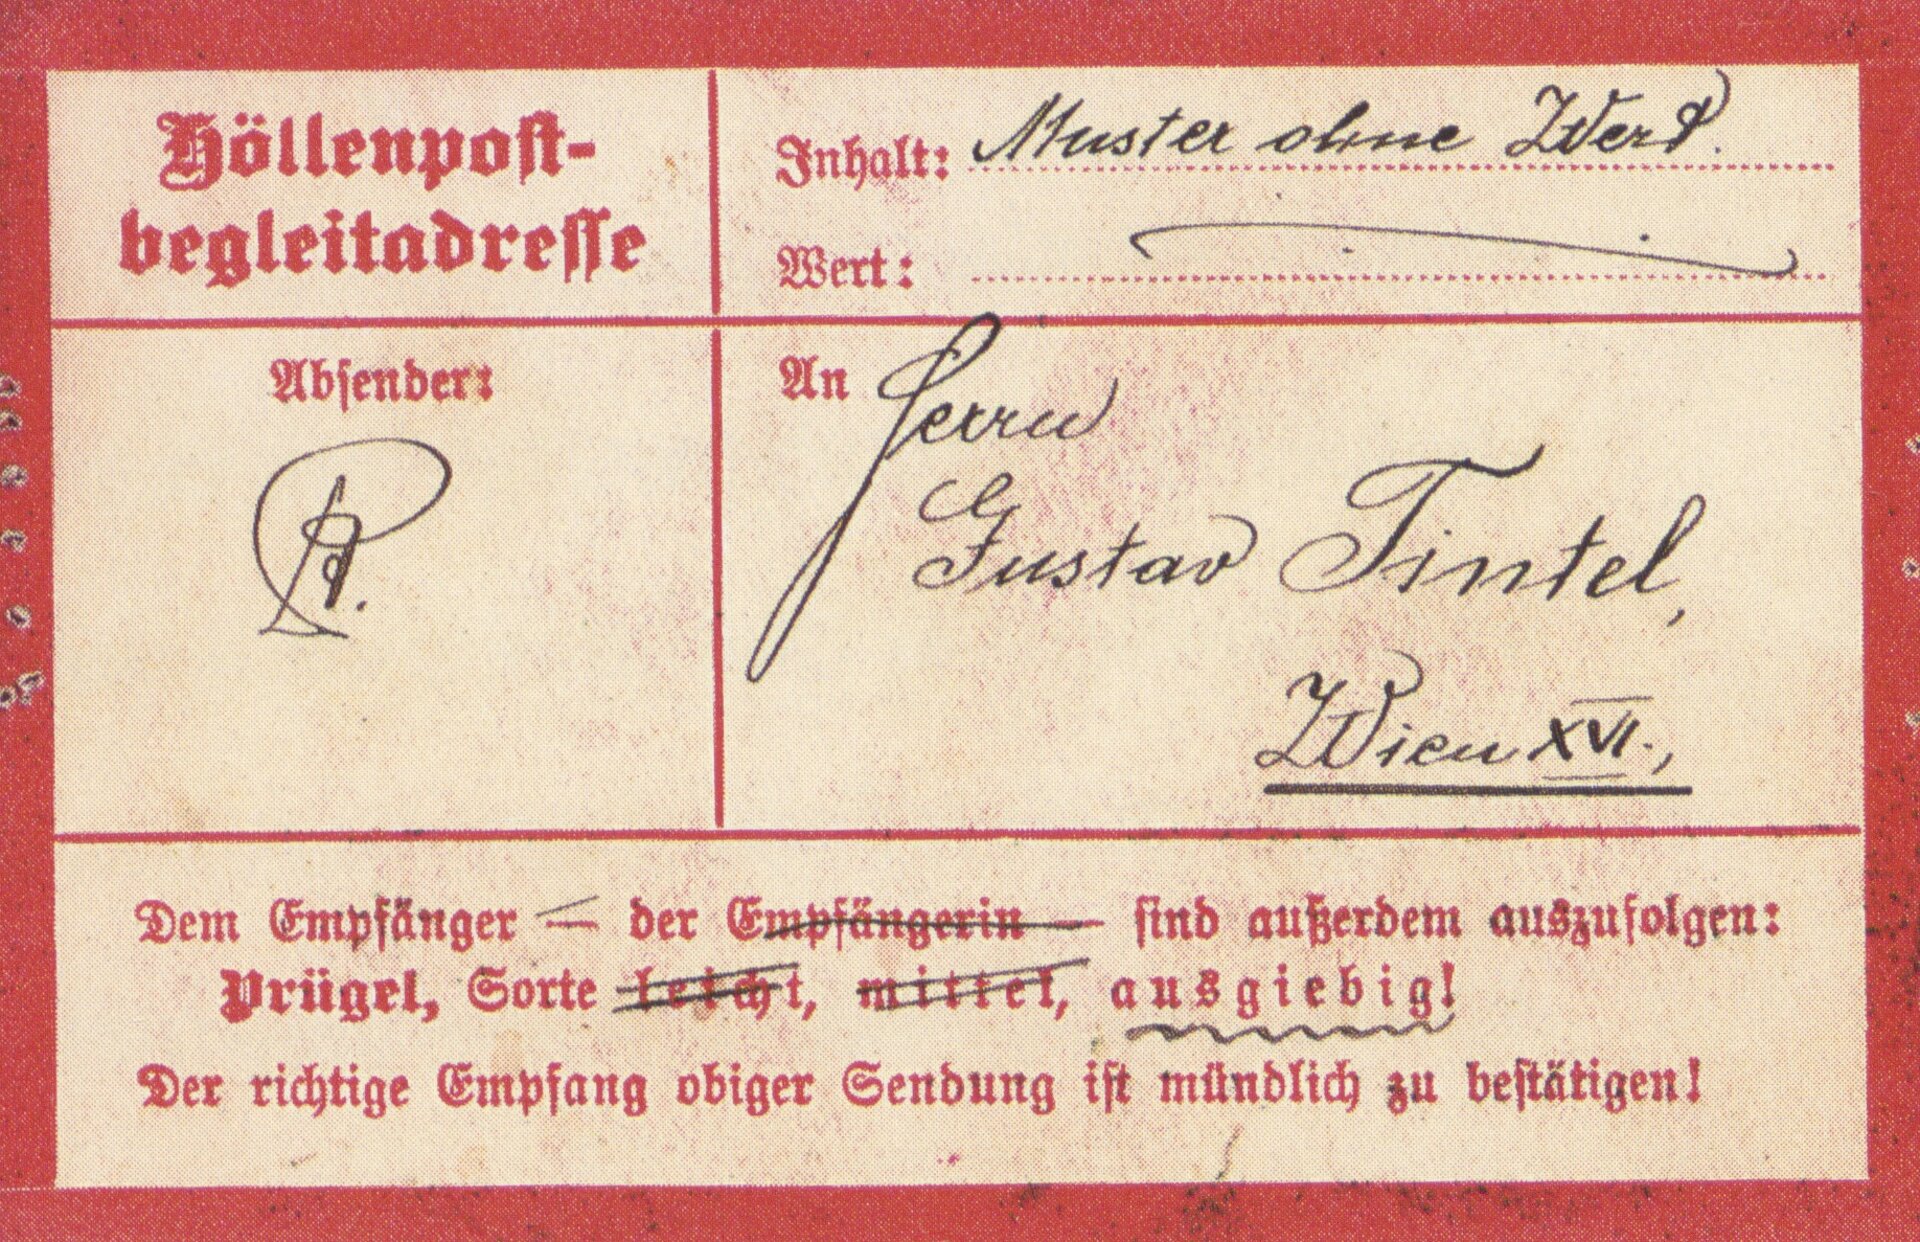 Höllenpost-
begleitadresse
Inhalt: Muster ohne Wert.
Wert:
Absender:
An Herrn
Gustav Tintel,
Wien XVI.,
Dem Empfänger — der Empfängerin — sind außerdem auszufolgen:
Prügel, Sorte leicht, mittel, ausgiebig!
Der richtige Empfang obiger Sendung ist mündlich zu bestätigen!